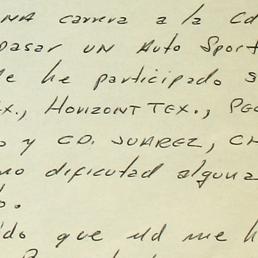 NA carrera a la Cd
pasar UN Auto Sport
he participado s
X., HORIZONT TEX., PEC
o y CD. JUAREZ, CH
no dificutad alguna
o.
ido que ud me h